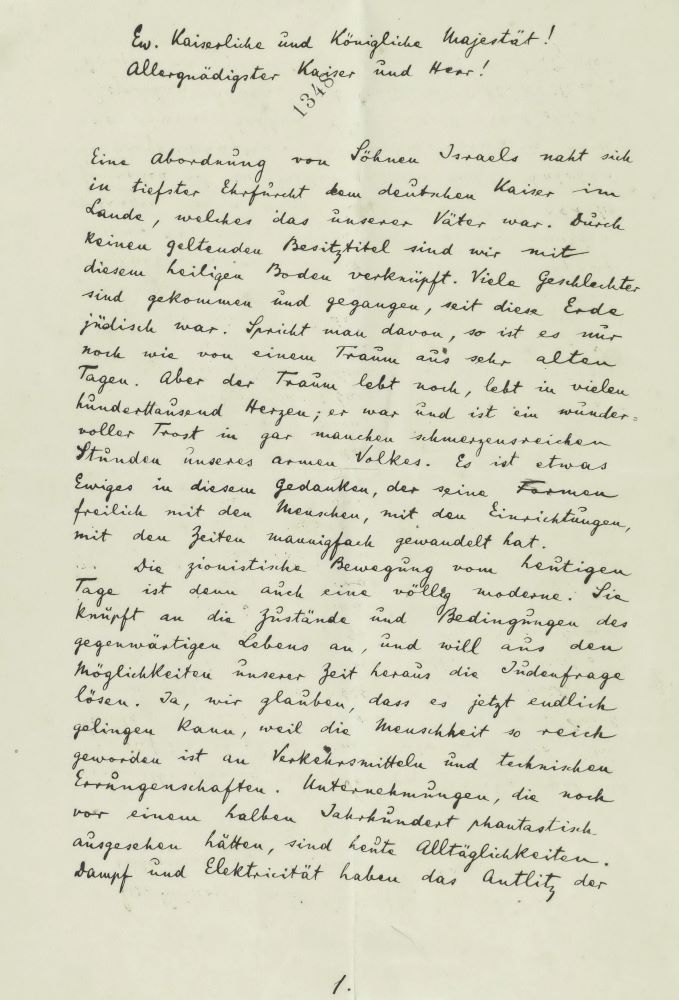 Ew. Kaiserliche und Königliche Majestät!
Allergnädigster Kaiser und Herr!
1348
Eine Abordnung von Söhnen Israels naht sich
in tiefster Ehrfurcht dem deutschen Kaiser im
Lande, welches das unserer Väter war. Durch
keinen geltenden Besitztitel sind wir mit
diesem heiligen Boden verknüpft. Viele Geschlechter
sind gekommen und gegangen, seit diese Erde
jüdisch war. Spricht man davon, so ist es nur
noch wie von einem Traum aus sehr alten
Tagen. Aber der Traum lebt noch, lebt in vielen
hunderttausend Herzen; er war und ist ein wunder=
voller Trost in gar manchen schmerzensreichen
Stunden unseres armen Volkes. Es ist etwas
Ewiges in diesem Gedanken, der seine Formen
freilich mit den Menschen, mit den Einrichtungen,
mit den Zeiten mannigfach gewandelt hat.
Die zionistische Bewegung vom heutigen
Tage ist denn auch eine völlig moderne. Sie
knüpft an die Zustände und Bedingungen des
gegenwärtigen Lebens an, und will aus den
Möglichkeiten unserer Zeit heraus die Judenfrage
lösen. Ja, wir glauben, dass es jetzt endlich
gelingen kann, weil die Menschheit so reich
geworden ist an Verkehrsmitteln und technischen
Errungenschaften. Unternehmungen, die noch
vor einem halben Jahrhundert phantastisch
ausgesehen hätten, sind heute Alltäglichkeiten.
Dampf und Elektricität haben das Antlitz der
1.